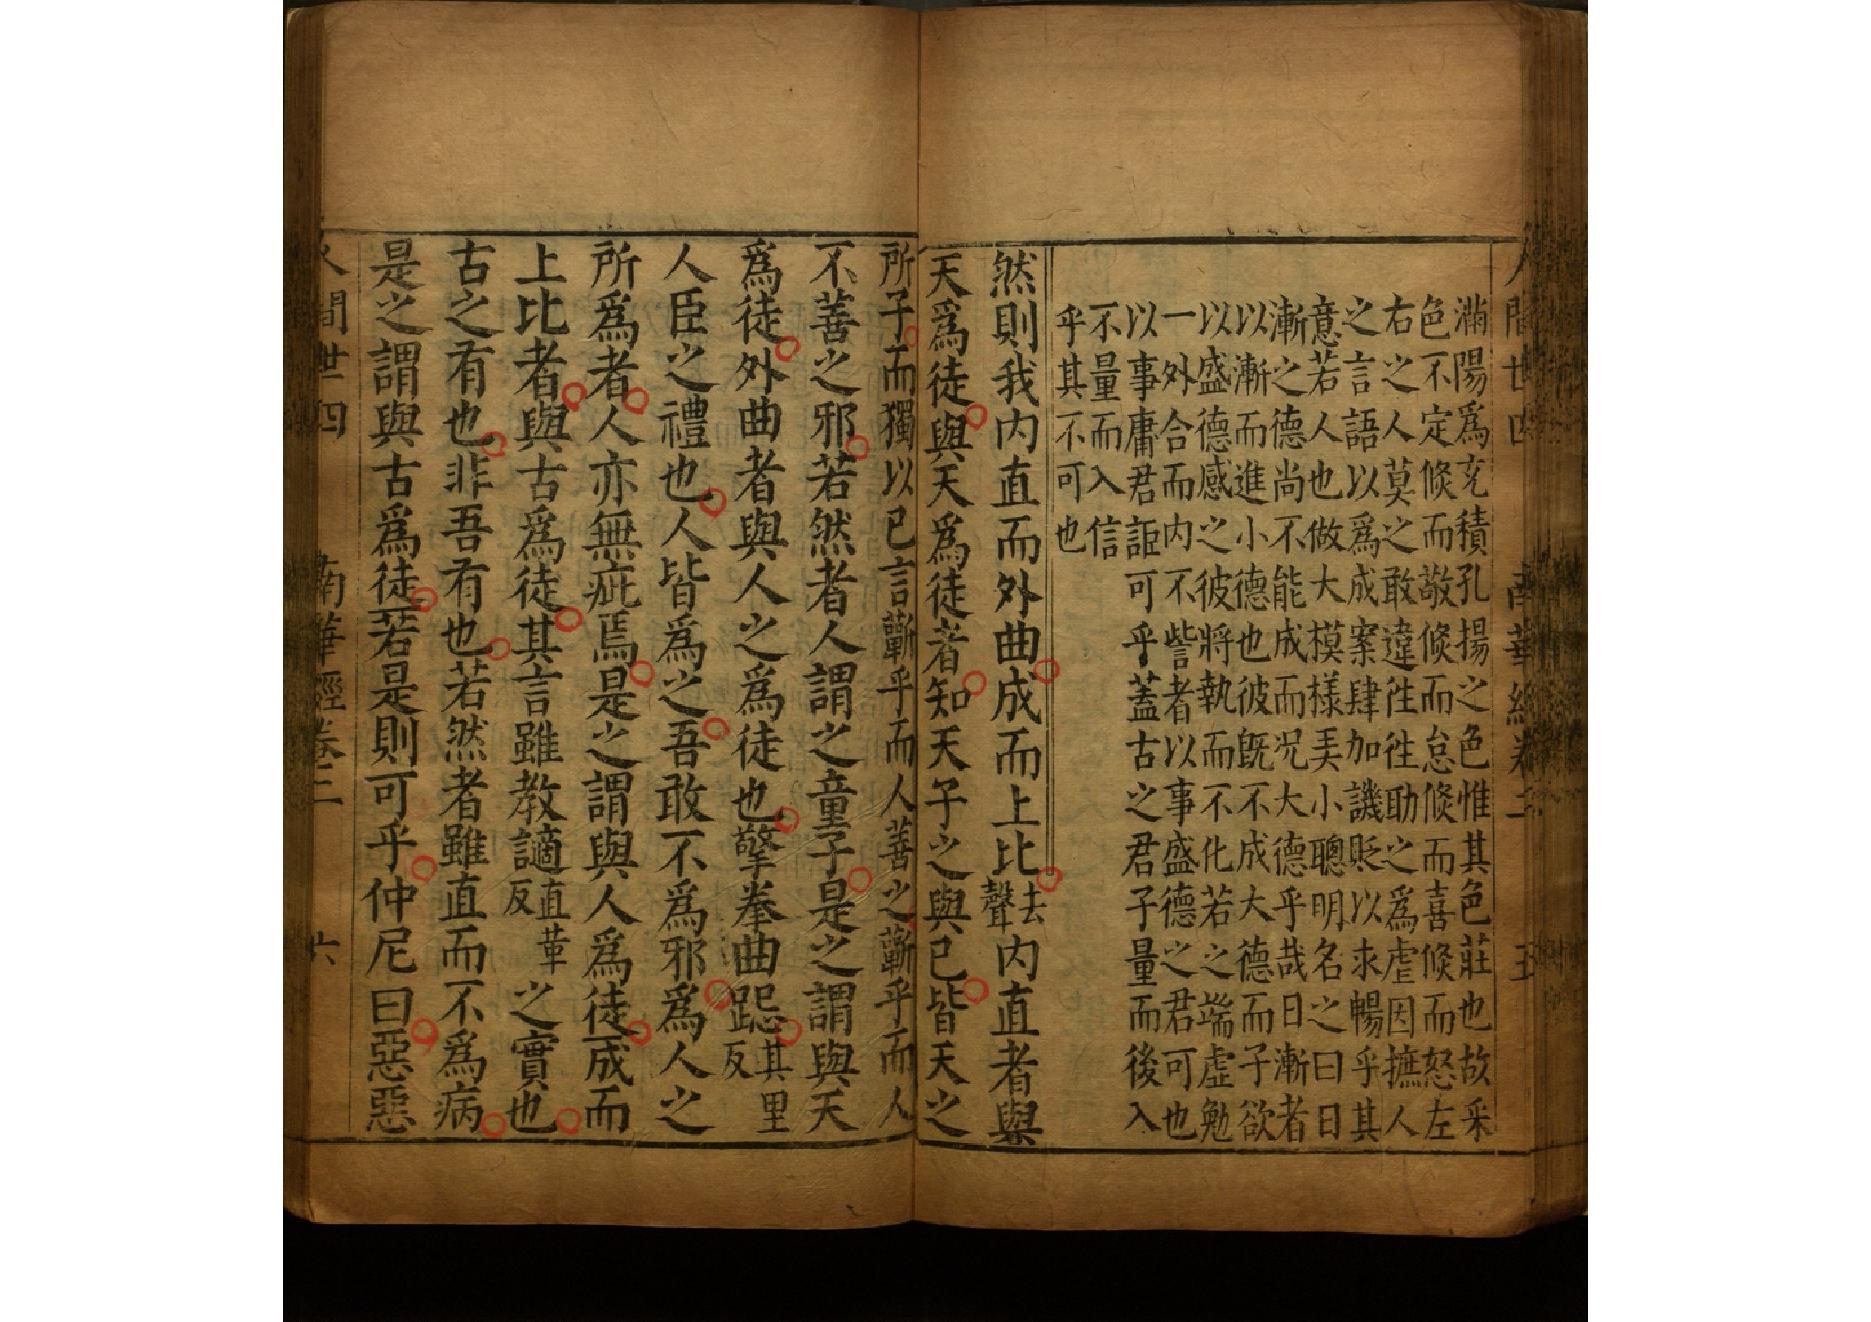 人間世四 南華經卷二 五
滿陽爲充積孔揚之色惟其色莊也故采
色不定倏而敬倏而怠倏而喜倏而怒左
右之人莫之敢違徃徃助之爲虐因摭人
之言語以爲成案肆加譏貶以求暢乎其
意若人也做大模樣美小聰明名之曰日
漸之德尚不能成而况大德乎哉日漸者
以漸而進小德也彼既不成大德而子欲
以盛德感之彼將執而不化若之端虛勉
一外合而内不訾者以事盛德之君可也
以事庸君詎可乎蓋古之君子量而後入
不量而入信
乎其不可也
然則我内直而外曲成而上比去聲内直者與
天爲徒與天爲徒者知天子之與已皆天之
所子而獨以已言蘄乎而人善之蘄乎而人
不善之邪若然者人謂之童子是之謂與天
爲徒外曲者與人之爲徒也擎拳曲跽其里反
人臣之禮也人皆爲之吾敢不爲邪爲人之
所爲者人亦無疵焉是之謂與人爲徒成而
上比者與古爲徒其言雖教讁直革反之實也
古之有也非吾有也若然者雖直而不爲病
是之謂與古爲徒若是則可乎仲尼曰惡惡
人間世四 南華經卷二 六